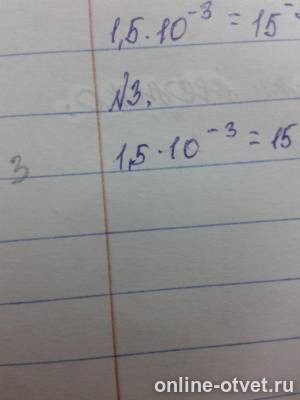 1,5·10⁻³ = 15⁻
№3.
1,5·10⁻³ = 15
3
online-otvet.ru